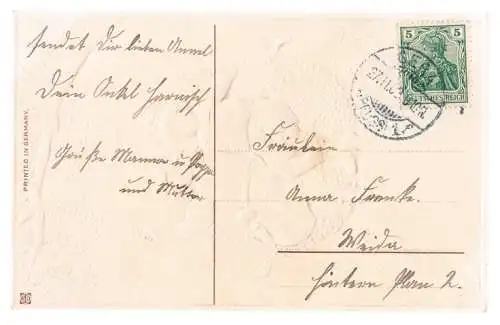 sendet Dir lieben Annel
Dein Onkel Harnisch
Grüße Mamma u Pappa
und Mutter
PRINTED IN GERMANY.
5 5
DEUTSCHES REICH
Fräulein
Anna Franke.
Weida
Hintern Plan 2.